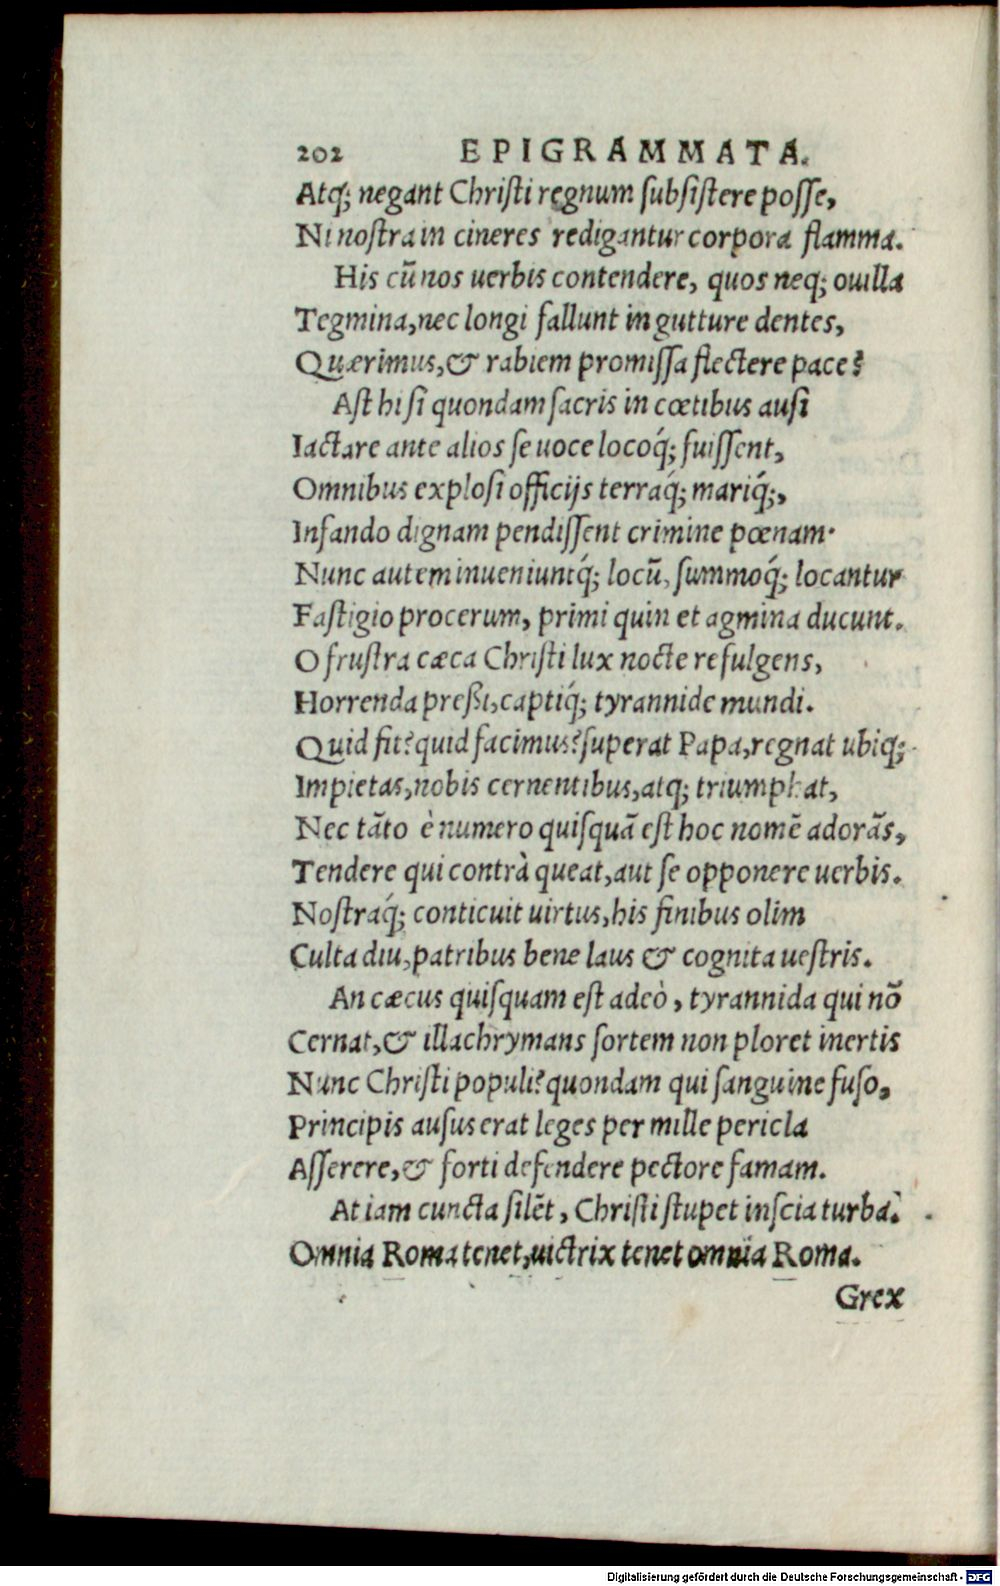 202 EPIGRAMMATA.
Atq; negant Christi regnum subsistere posse,
Ni nostra in cineres redigantur corpora flamma.
His cū nos uerbis contendere, quos neq; ouilla
Tegmina, nec longi fallunt in gutture dentes,
Quærimus, & rabiem promissa flectere pace?
Ast hi si quondam sacris in cœtibus ausi
Iactare ante alios se uoce locoq́; fuissent,
Omnibus explosi officijs terraq́; mariq́;,
Infando dignam pendissent crimine pœnam.
Nunc autem inueniuntq́; locū, summoq́; locantur
Fastigio procerum, primi quin et agmina ducunt.
O frustra cæca Christi lux nocte refulgens,
Horrenda preßi, captiq́; tyrannide mundi.
Quid fit? quid facimus? superat Papa, regnat ubiq;
Impietas, nobis cernentibus, atq; triumphat,
Nec tāto è numero quisquā est hoc nomē adorās,
Tendere qui contrà queat, aut se opponere uerbis.
Nostraq́; conticuit uirtus, his finibus olim
Culta diu, patribus bene laus & cognita uestris.
An cæcus quisquam est adeò, tyrannida qui nō
Cernat, & illachrymans sortem non ploret inertis
Nunc Christi populi? quondam qui sanguine fuso,
Principis ausus erat leges per mille pericla
Asserere, & forti defendere pectore famam.
At iam cuncta silēt, Christi stupet inscia turba.
Omnia Roma tenet, uictrix tenet omnia Roma.
Grex
Digitalisierung gefördert durch die Deutsche Forschungsgemeinschaft - DFG